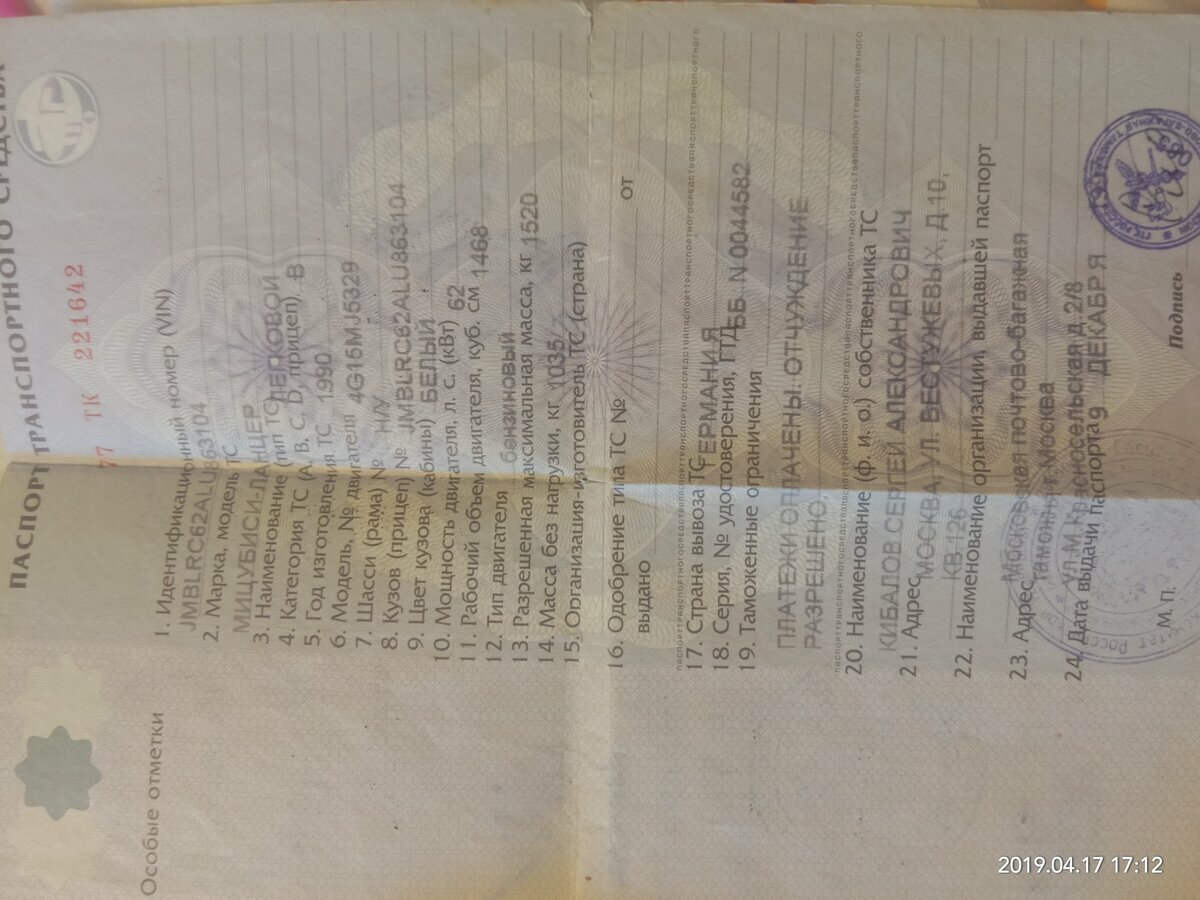 ПАСПОРТ ТРАНСПОРТНОГО СРЕДСТВА
77 ТК 221642
1. Идентификационный номер (VIN)
JMBLRC62ALU863104
2. Марка, модель ТС
МИЦУБИСИ-ЛАНЦЕР
3. Наименование (тип ТС) ЛЕГКОВОЙ
4. Категория ТС (A, B, C, D, прицеп) B
5. Год изготовления ТС 1990
6. Модель, № двигателя 4G15MJ5329
7. Шасси (рама) № Н/У
8. Кузов (прицеп) № JMBLRC62ALU863104
9. Цвет кузова (кабины) БЕЛЫЙ
10. Мощность двигателя, л. с. (кВт) 62
11. Рабочий объем двигателя, куб. см 1468
12. Тип двигателя бензиновый
13. Разрешенная максимальная масса, кг 1520
14. Масса без нагрузки, кг 1035
15. Организация-изготовитель ТС (страна)
16. Одобрение типа ТС № от
выдано
17. Страна вывоза ТС ГЕРМАНИЯ
18. Серия, № удостоверения, ПТД ББ N 0044582
19. Таможенные ограничения
ПЛАТЕЖИ ОПЛАЧЕНЫ. ОТЧУЖДЕНИЕ
РАЗРЕШЕНО.
20. Наименование (ф. и. о.) собственника ТС
КИБАЛОВ СЕРГЕЙ АЛЕКСАНДРОВИЧ
21. Адрес МОСКВА, УЛ. БЕСТУЖЕВЫХ, Д 10,
КВ 126
22. Наименование организации, выдавшей паспорт
Московская почтово-багажная
таможня г. Москва
23. Адрес ул. М. Красносельская д. 2/8
24. Дата выдачи паспорта 9 ДЕКАБРЯ
М. П. Подпись
Особые отметки
2019.04.17 17:12